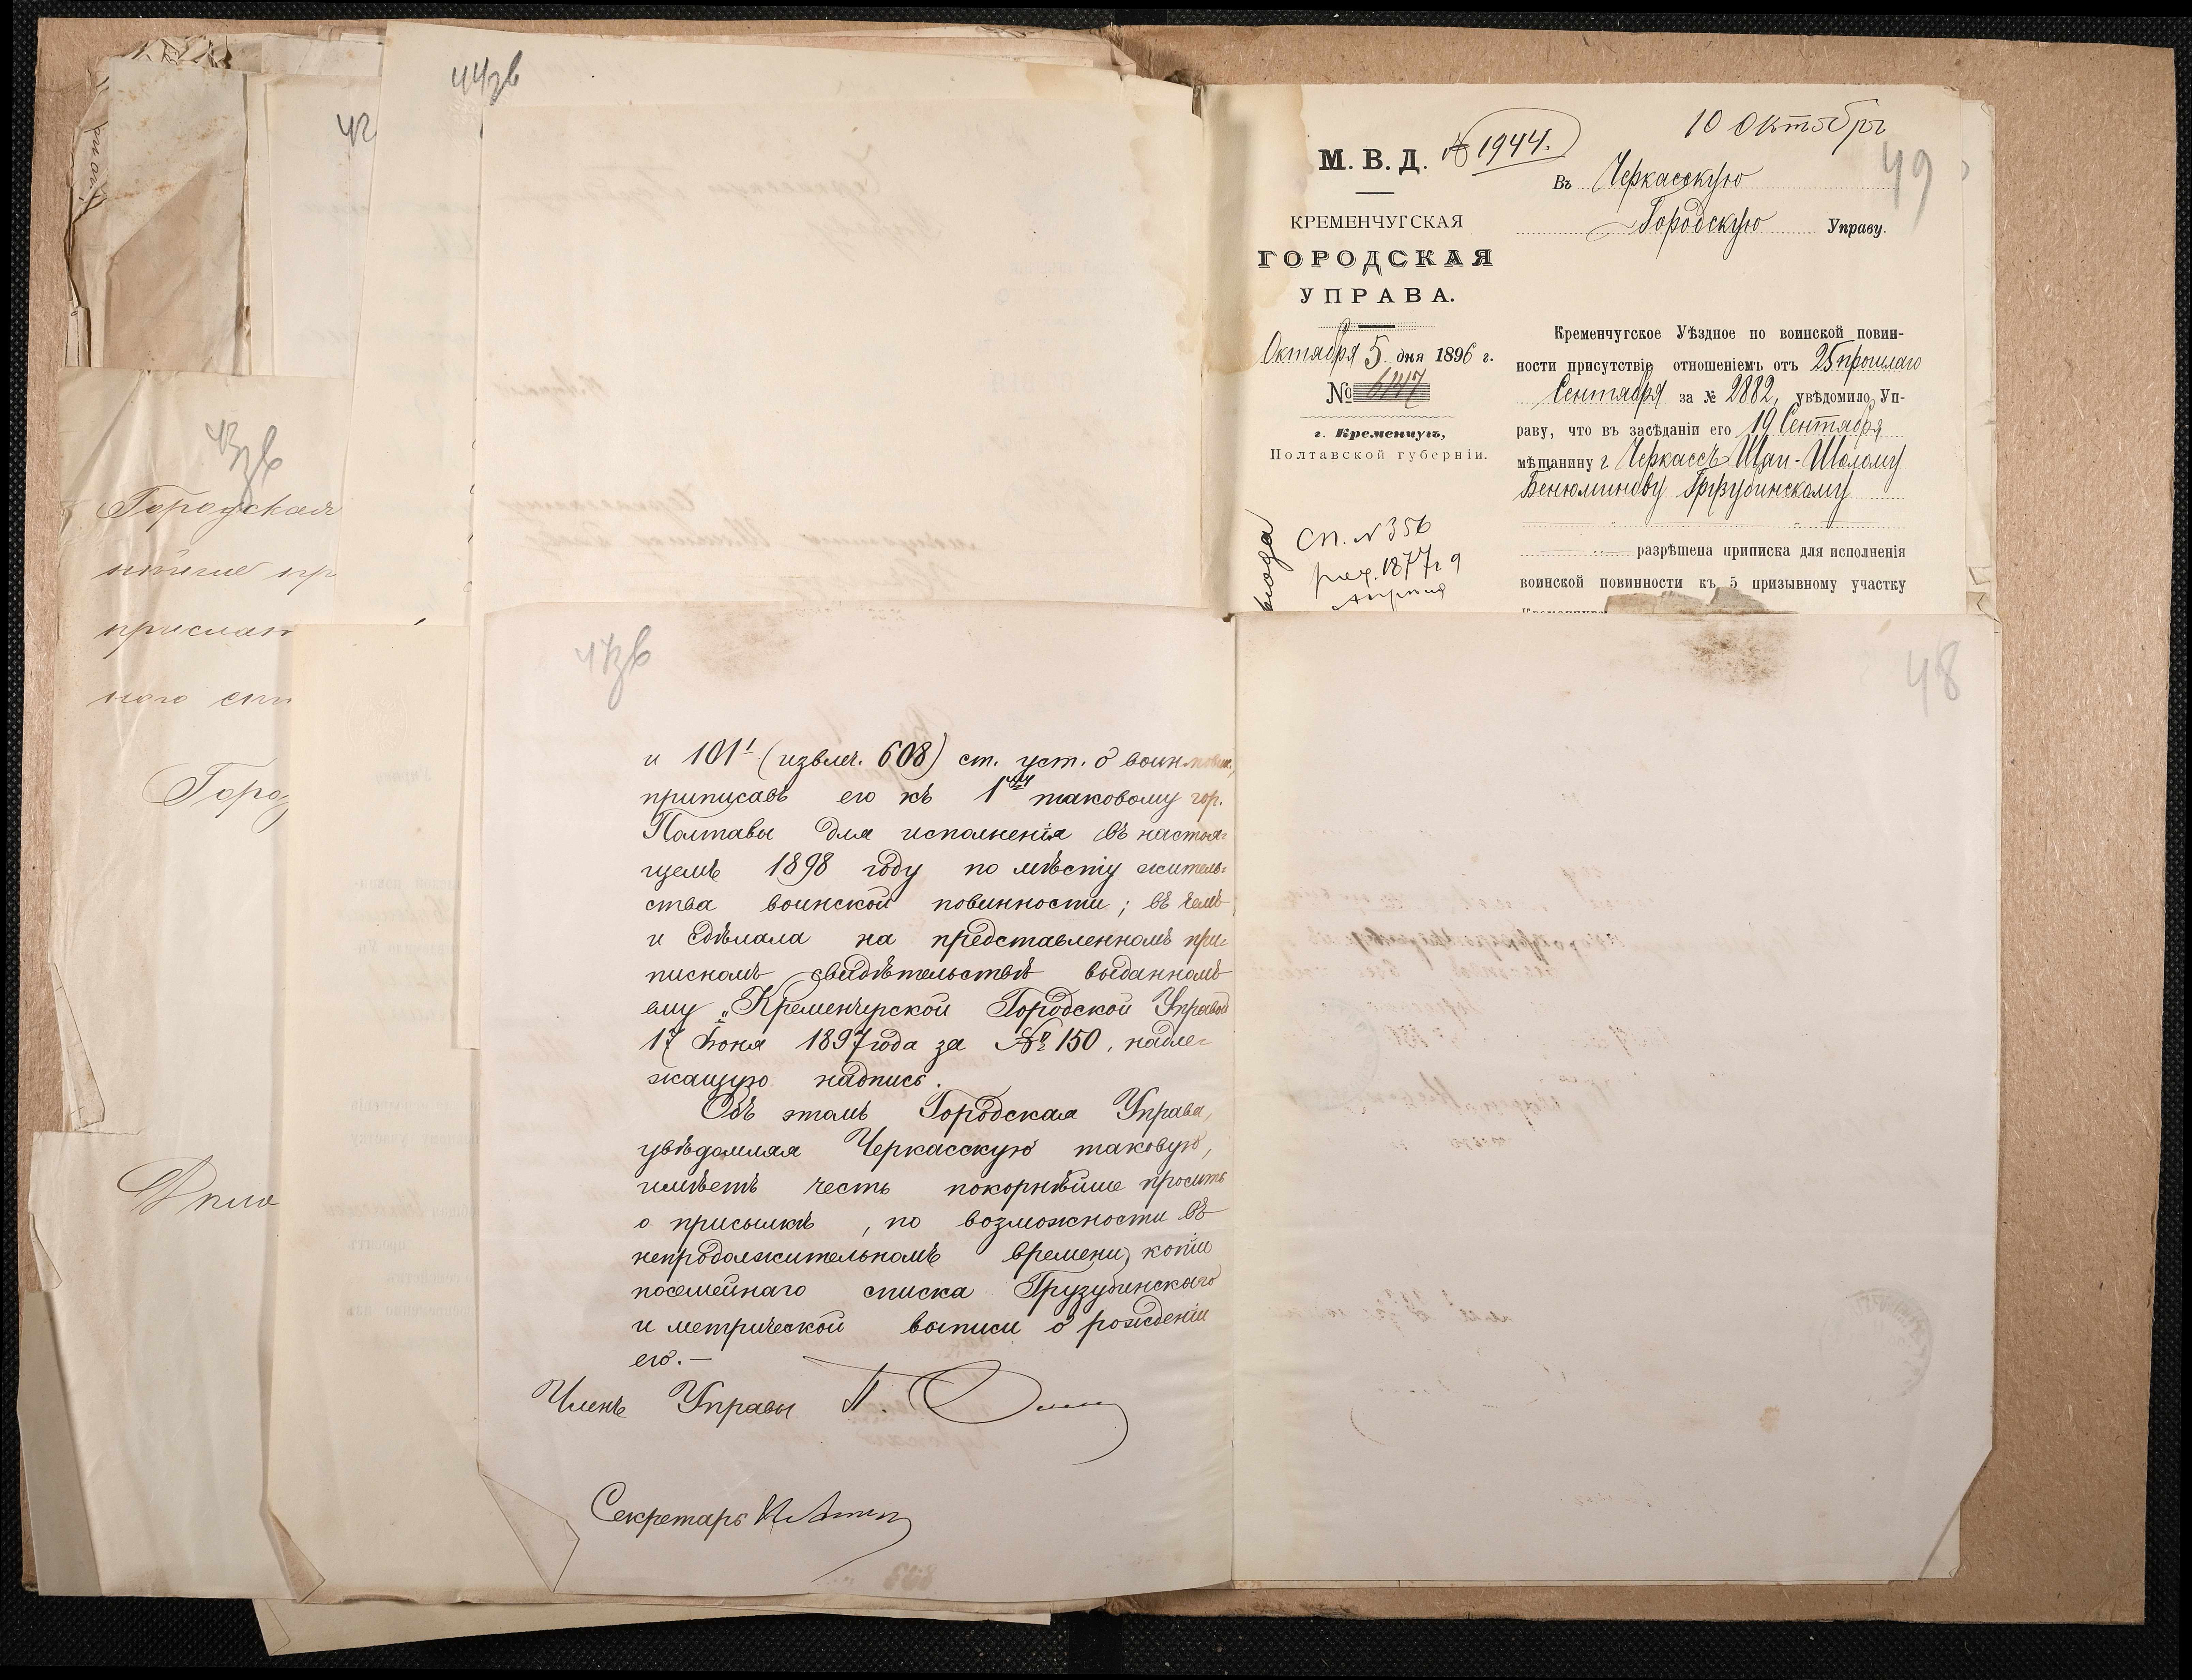 44зв
42
43зв
Городская
прислан
ного
Горо
10 Октября
49
М. В. Д.
№ 1944.
Въ Черкасскую
Городскую Управу.
КРЕМЕНЧУГСКАЯ
ГОРОДСКАЯ
УПРАВА.
Октября 5 дня 1896 г.
№ 6147
г. Кременчугъ,
Полтавской губерніи.
Сп. № 356
1877 г 9
Апреля
Кременчугское Уѣздное по воинской повин-
ности присутствіе отношеніемъ отъ 25 прошлаго
Сентября за № 2882, увѣдомило Уп-
раву, что въ засѣданіи его 19 Сентября
мѣщанину г. Черкассъ Шап-Шолому
Бенюминову Грузубинскому
разрѣшена приписка для исполненія
воинской повинности къ 5 призывному участку
47зв
48
и 101¹ (извлеч. 608) ст. уст. о воин. повин.,
приписавъ его къ 1му таковому гор.
Полтавы для исполненія въ настоя-
щемъ 1898 году по мѣсту житель-
ства воинской повинности; въ чемъ
и сдѣлала на представленномъ при-
писномъ свидѣтельствѣ выданномъ
ему Кременчугской Городской Управой
17 Іюня 1897 года за № 150, надле-
жащую надпись.
Объ этомъ Городская Управа,
увѣдомляя Черкасскую таковую,
имѣетъ честь покорнѣйше просить
о присылкѣ, по возможности въ
непродолжительномъ времени, копіи
посемейнаго списка Грузубинскаго
и метрической выписи о рожденіи
его.—
Членъ Управы П.
Секретарь